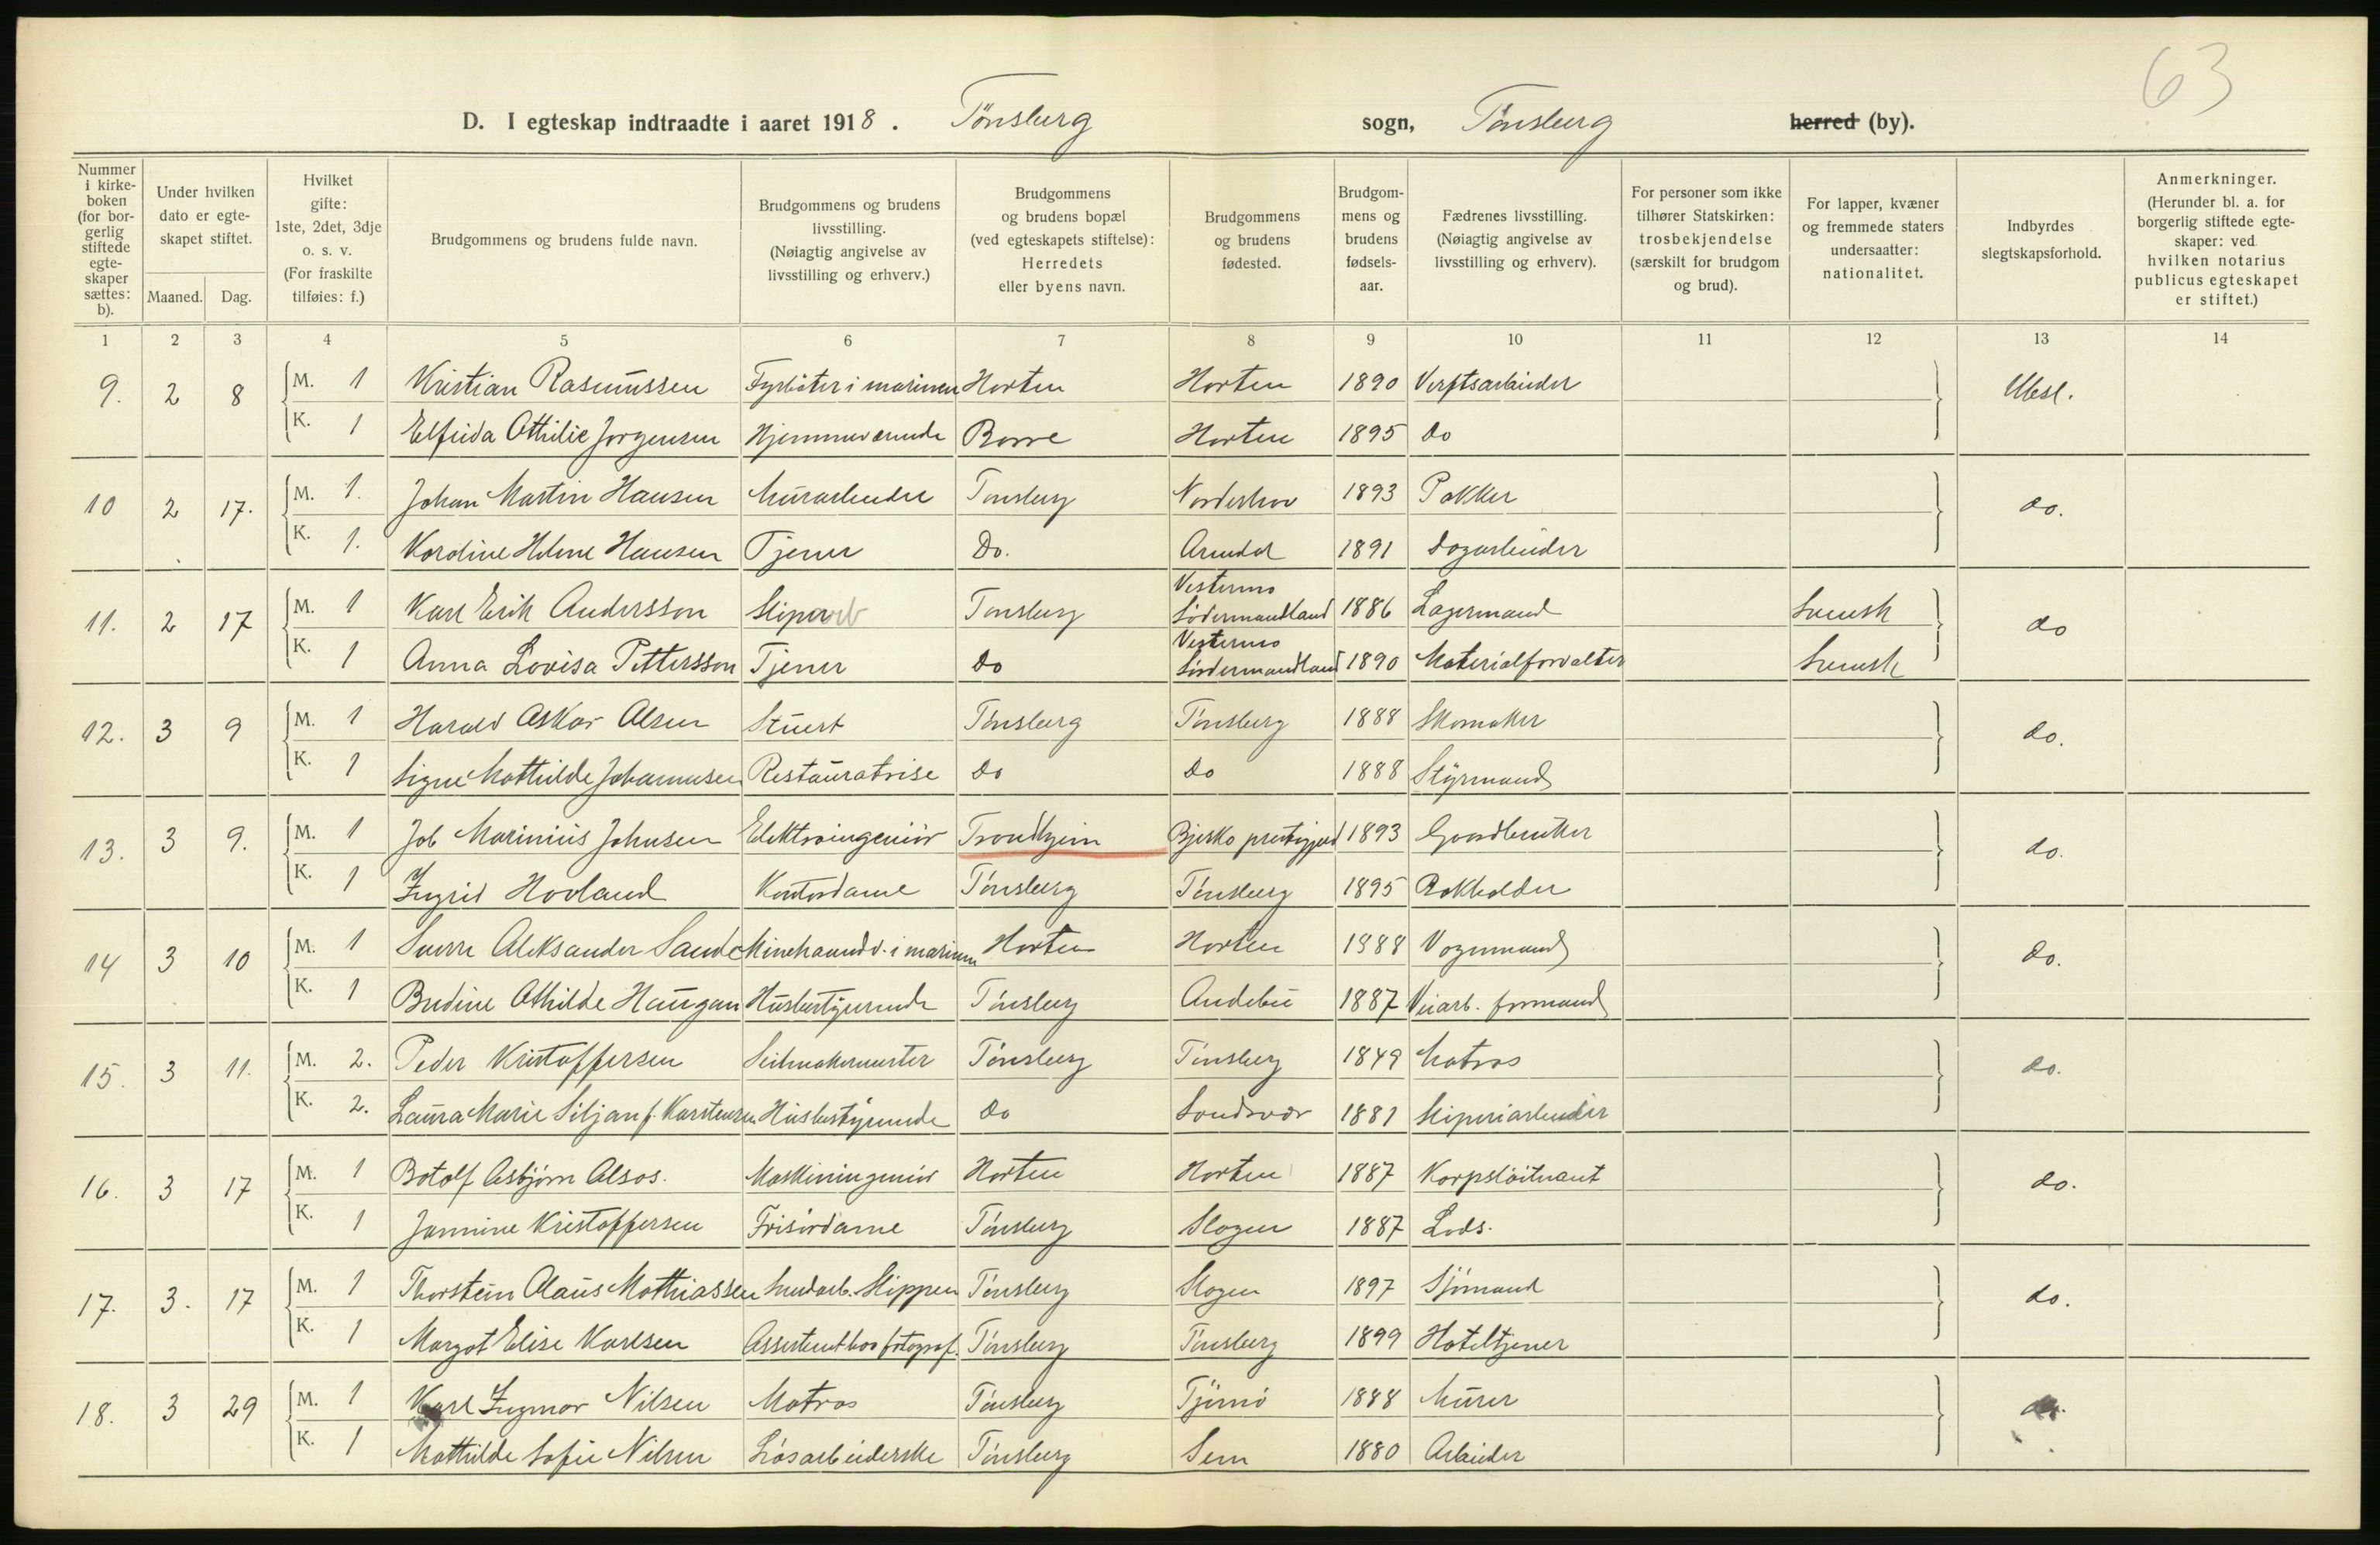 63
D. I egteskap indtraadte i aaret 1918. Tønsberg sogn, Tønsberg herred (by).
Nummer i kirkeboken (for borgerlig stiftede egteskaper sættes: b).
Under hvilken dato er egteskapet stiftet.
Maaned. Dag.
Hvilket gifte: 1ste, 2det, 3dje o. s. v. (For fraskilte tilføies: f.)
Brudgommens og brudens fulde navn.
Brudgommens og brudens livsstilling. (Nøiagtig angivelse av livsstilling og erhverv.)
Brudgommens og brudens bopæl (ved egteskapets stiftelse): Herredets eller byens navn.
Brudgommens og brudens fødested.
Brudgommens og brudens fødselsaar.
Fædrenes livsstilling. (Nøiagtig angivelse av livsstilling og erhverv).
For personer som ikke tilhører Statskirken: trosbekjendelse (særskilt for brudgom og brud).
For lapper, kvæner og fremmede staters undersaatter: nationalitet.
Indbyrdes slegtskapsforhold.
Anmerkninger. (Herunder bl. a. for borgerlig stiftede egteskaper: ved hvilken notarius publicus egteskapet er stiftet.)
1 2 3 4 5 6 7 8 9 10 11 12 13 14
9. 2 8 M. 1 Kristian Rasmussen Fyrbøter i marinen Horten Horten 1890 Verftsarbeider Ubesl.
K. 1 Elfrida Othilie Jørgensen Hjemmeværende Borre Horten 1895 do
10 2 17. M. 1. Johan Martin Hansen Murarbeider Tønsberg Norderhov 1893 Pakker do.
K. 1. Karoline Helene Hansen Tjener Do. Arendal 1891 Dagarbeider
11. 2 17 M. 1 Karl Erik Andersson Skiparb Tønsberg Vestermo Södermandland 1886 Lagermand Svensk do
K. 1 Anna Lovisa Pettersson Tjener do Vestermo Södermandland 1890 Materialforvalter Svensk
12. 3 9 M. 1 Harald Oskar Olsen Stuert Tønsberg Tønsberg 1888 Skomaker do.
K. 1 Signe Mathilde Johannesen Restauratrise do do 1888 Styrmand
13. 3 9. M. 1 Job Marinius Johnsen Elektroingeniør Trondhjem Bjerko prestegjeld 1893 Gaardbruker do.
K. 1 Ingrid Hovland Kontordame Tønsberg Tønsberg 1895 Bokholder
14 3 10 M. 1 Sverre Aleksander Sande Minehaandv. i marinen Horten Horten 1888 Vognmand do.
K. 1 Bredine Othilde Haugan Husbestyrerinde Tønsberg Andebu 1887 Veiarb. formand
15. 3 11. M. 2. Peder Kristoffersen Seilmakermester Tønsberg Tønsberg 1849 Matros do.
K. 2. Laura Marie Siljan f. Karstensen Husbestyrerinde do Sandsvær 1881 Skiperiarbeider
16. 3 17 M. 1 Botolf Asbjørn Alsos. Maskiningeniør Horten Horten 1887 Korpsløitnant do.
K. 1 Jannine Kristoffersen Frisørdame Tønsberg Slagen 1887 Lods.
17. 3. 17 M. 1 Thorstein Olaus Mathiassen Smedarb. Skippern Tønsberg Slagen 1897 Sjømand do.
K. 1 Margot Elise Karlsen Assistent hos fotograf. Tønsberg Tønsberg 1899 Hoteltjener
18. 3 29 M. 1 Karl Ingmar Nilsen Matros Tønsberg Tjømø 1888 Murer do.
K. 1 Mathilde Sofie Nilsen Løsarbeiderske Tønsberg Sem 1880 Arbeider